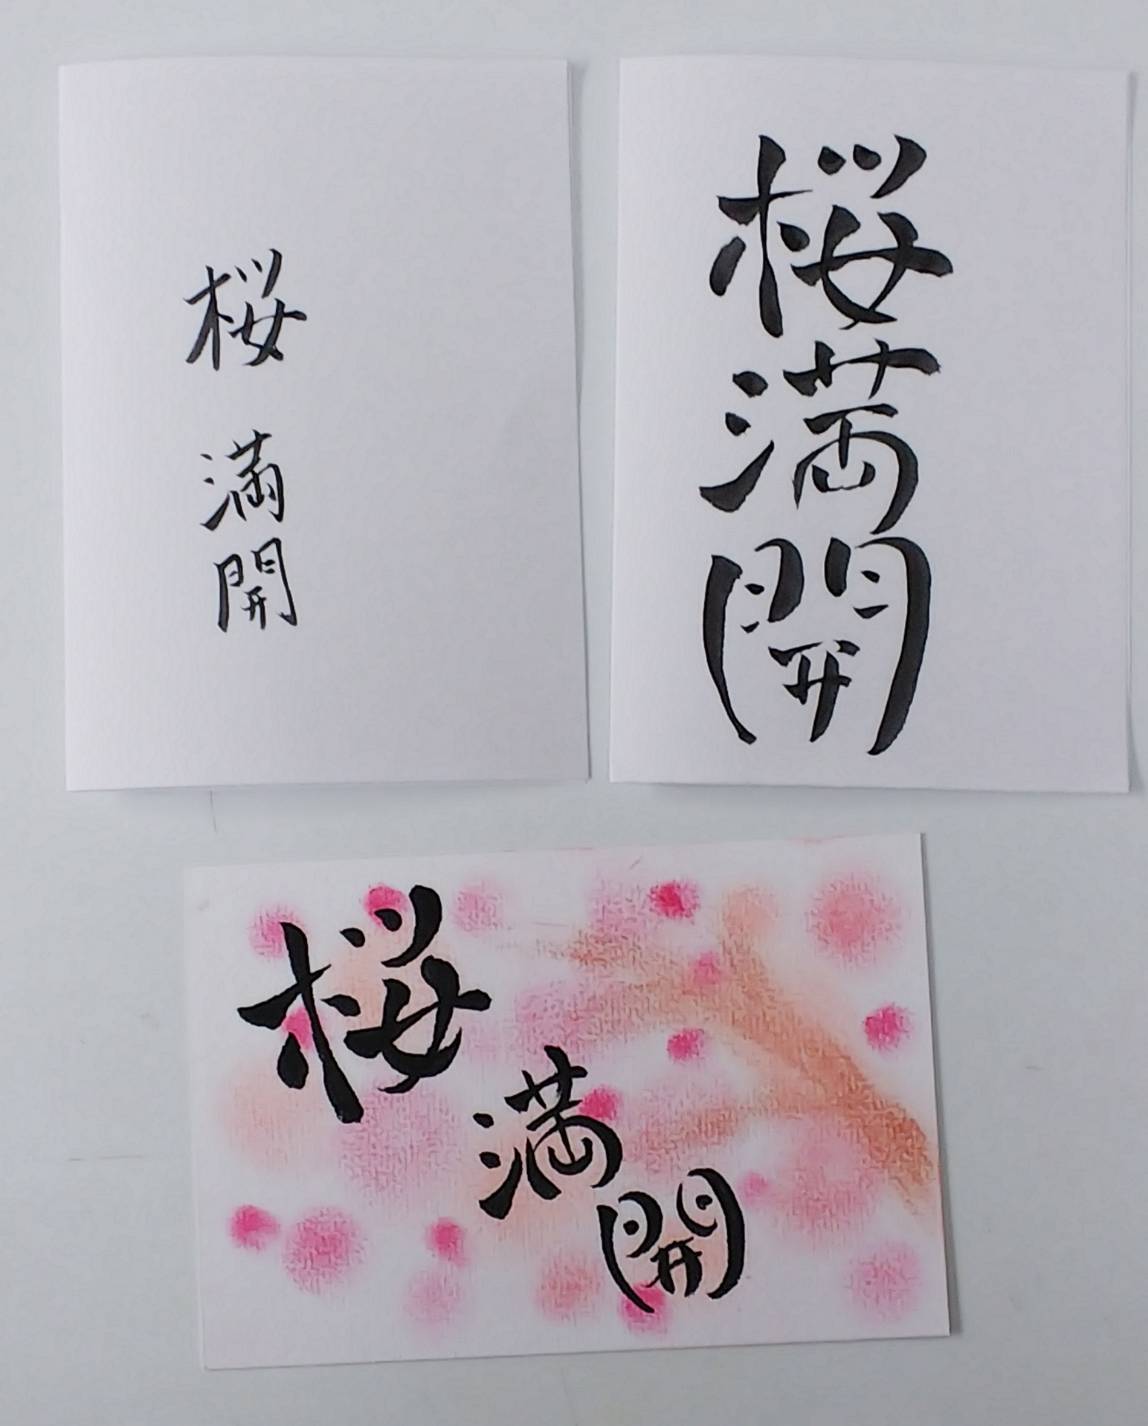 桜満開
桜満開
桜満開